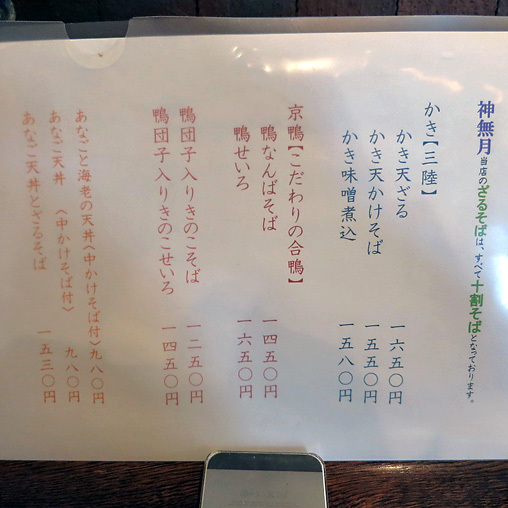 神無月 当店のざるそばは、すべて十割そばとなっております。
かき【三陸】
かき天ざる 一六五〇円
かき天かけそば 一五五〇円
かき味噌煮込 一五八〇円
京鴨【こだわりの合鴨】
鴨なんばそば 一四五〇円
鴨せいろ 一六五〇円
鴨団子入りきのこそば 一二五〇円
鴨団子入りきのこせいろ 一四五〇円
あなごと海老の天丼〈中かけそば付〉九八〇円
あなご天丼 〈中かけそば付〉 九八〇円
あなご天丼とざるそば 一五三〇円